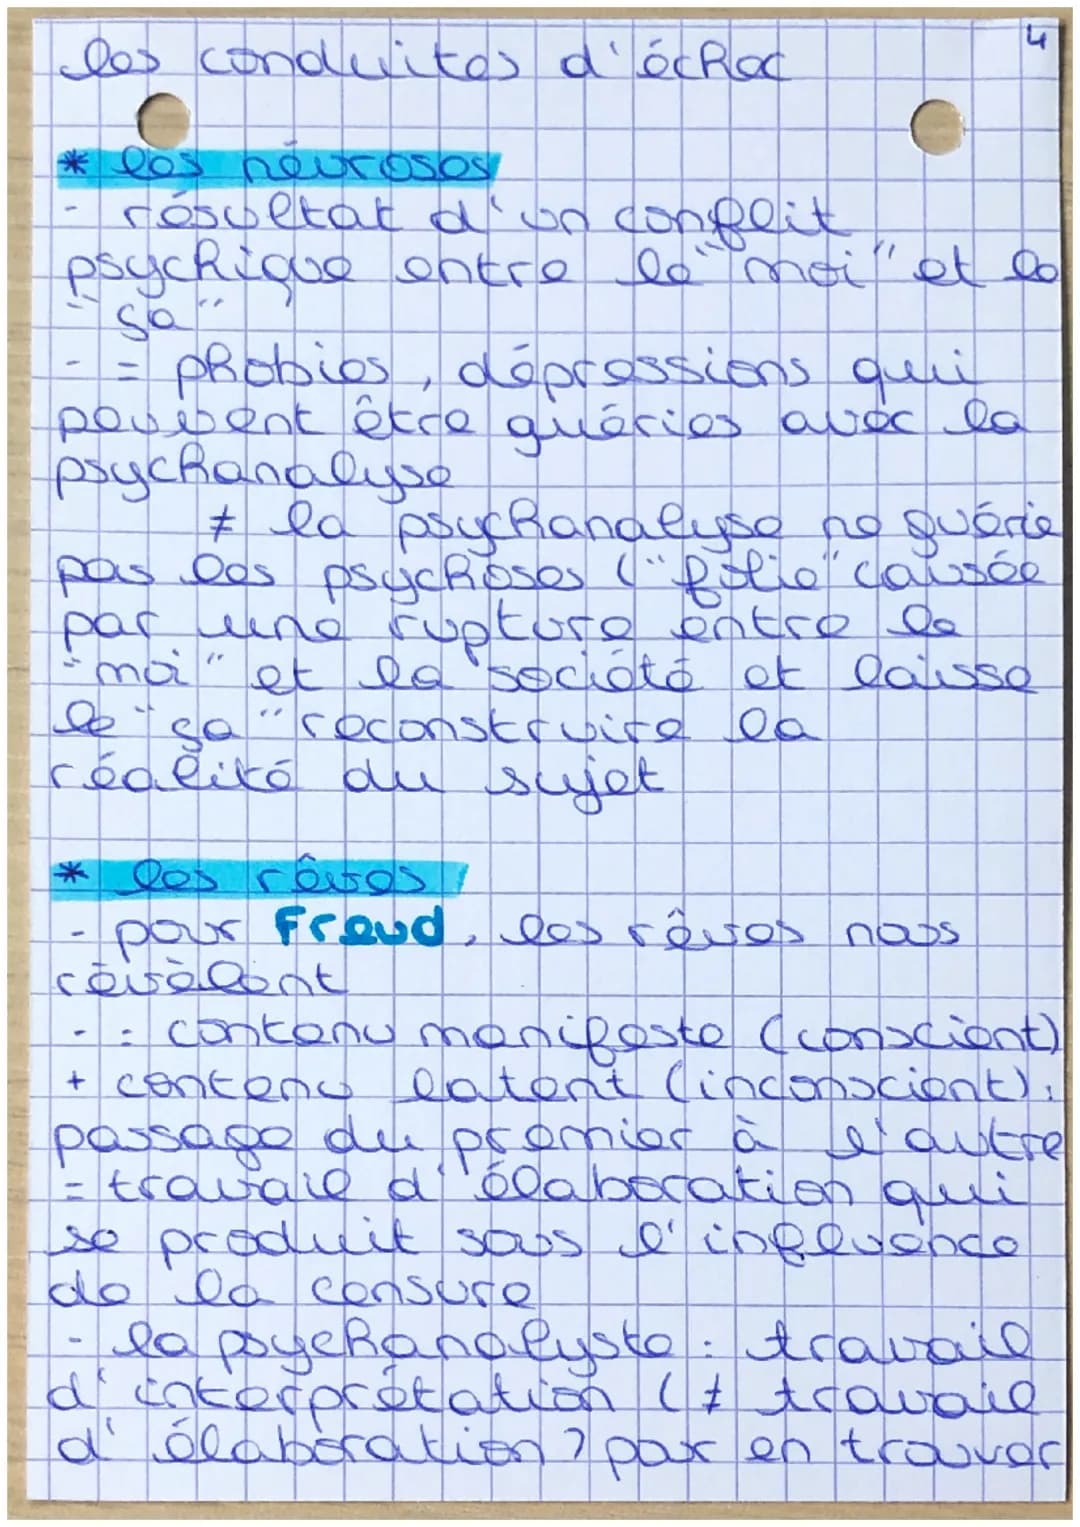 4
les conduites d'échec
* les névroses
- résultat d'un conflit
psychique entre le "moi" et le
"ça"
- = phobies, dépressions qui
peuvent être guéries avec la
psychanalyse
≠ la psychanalyse ne guérie
pas les psychoses ("folie" causée
par une rupture entre le
"moi" et la société et laisse
le "ça" reconstruire la
réalité du sujet
* les rêves
- pour Freud, les rêves nous
révèlent
- = contenu manifeste (conscient)
+ contenu latent (inconscient) :
passage du premier à l'autre
= travail d'élaboration qui
se produit sous l'influence
de la censure
- la psychanalyste : travail
d'interprétation (≠ travail
d'élaboration) pour en trouver